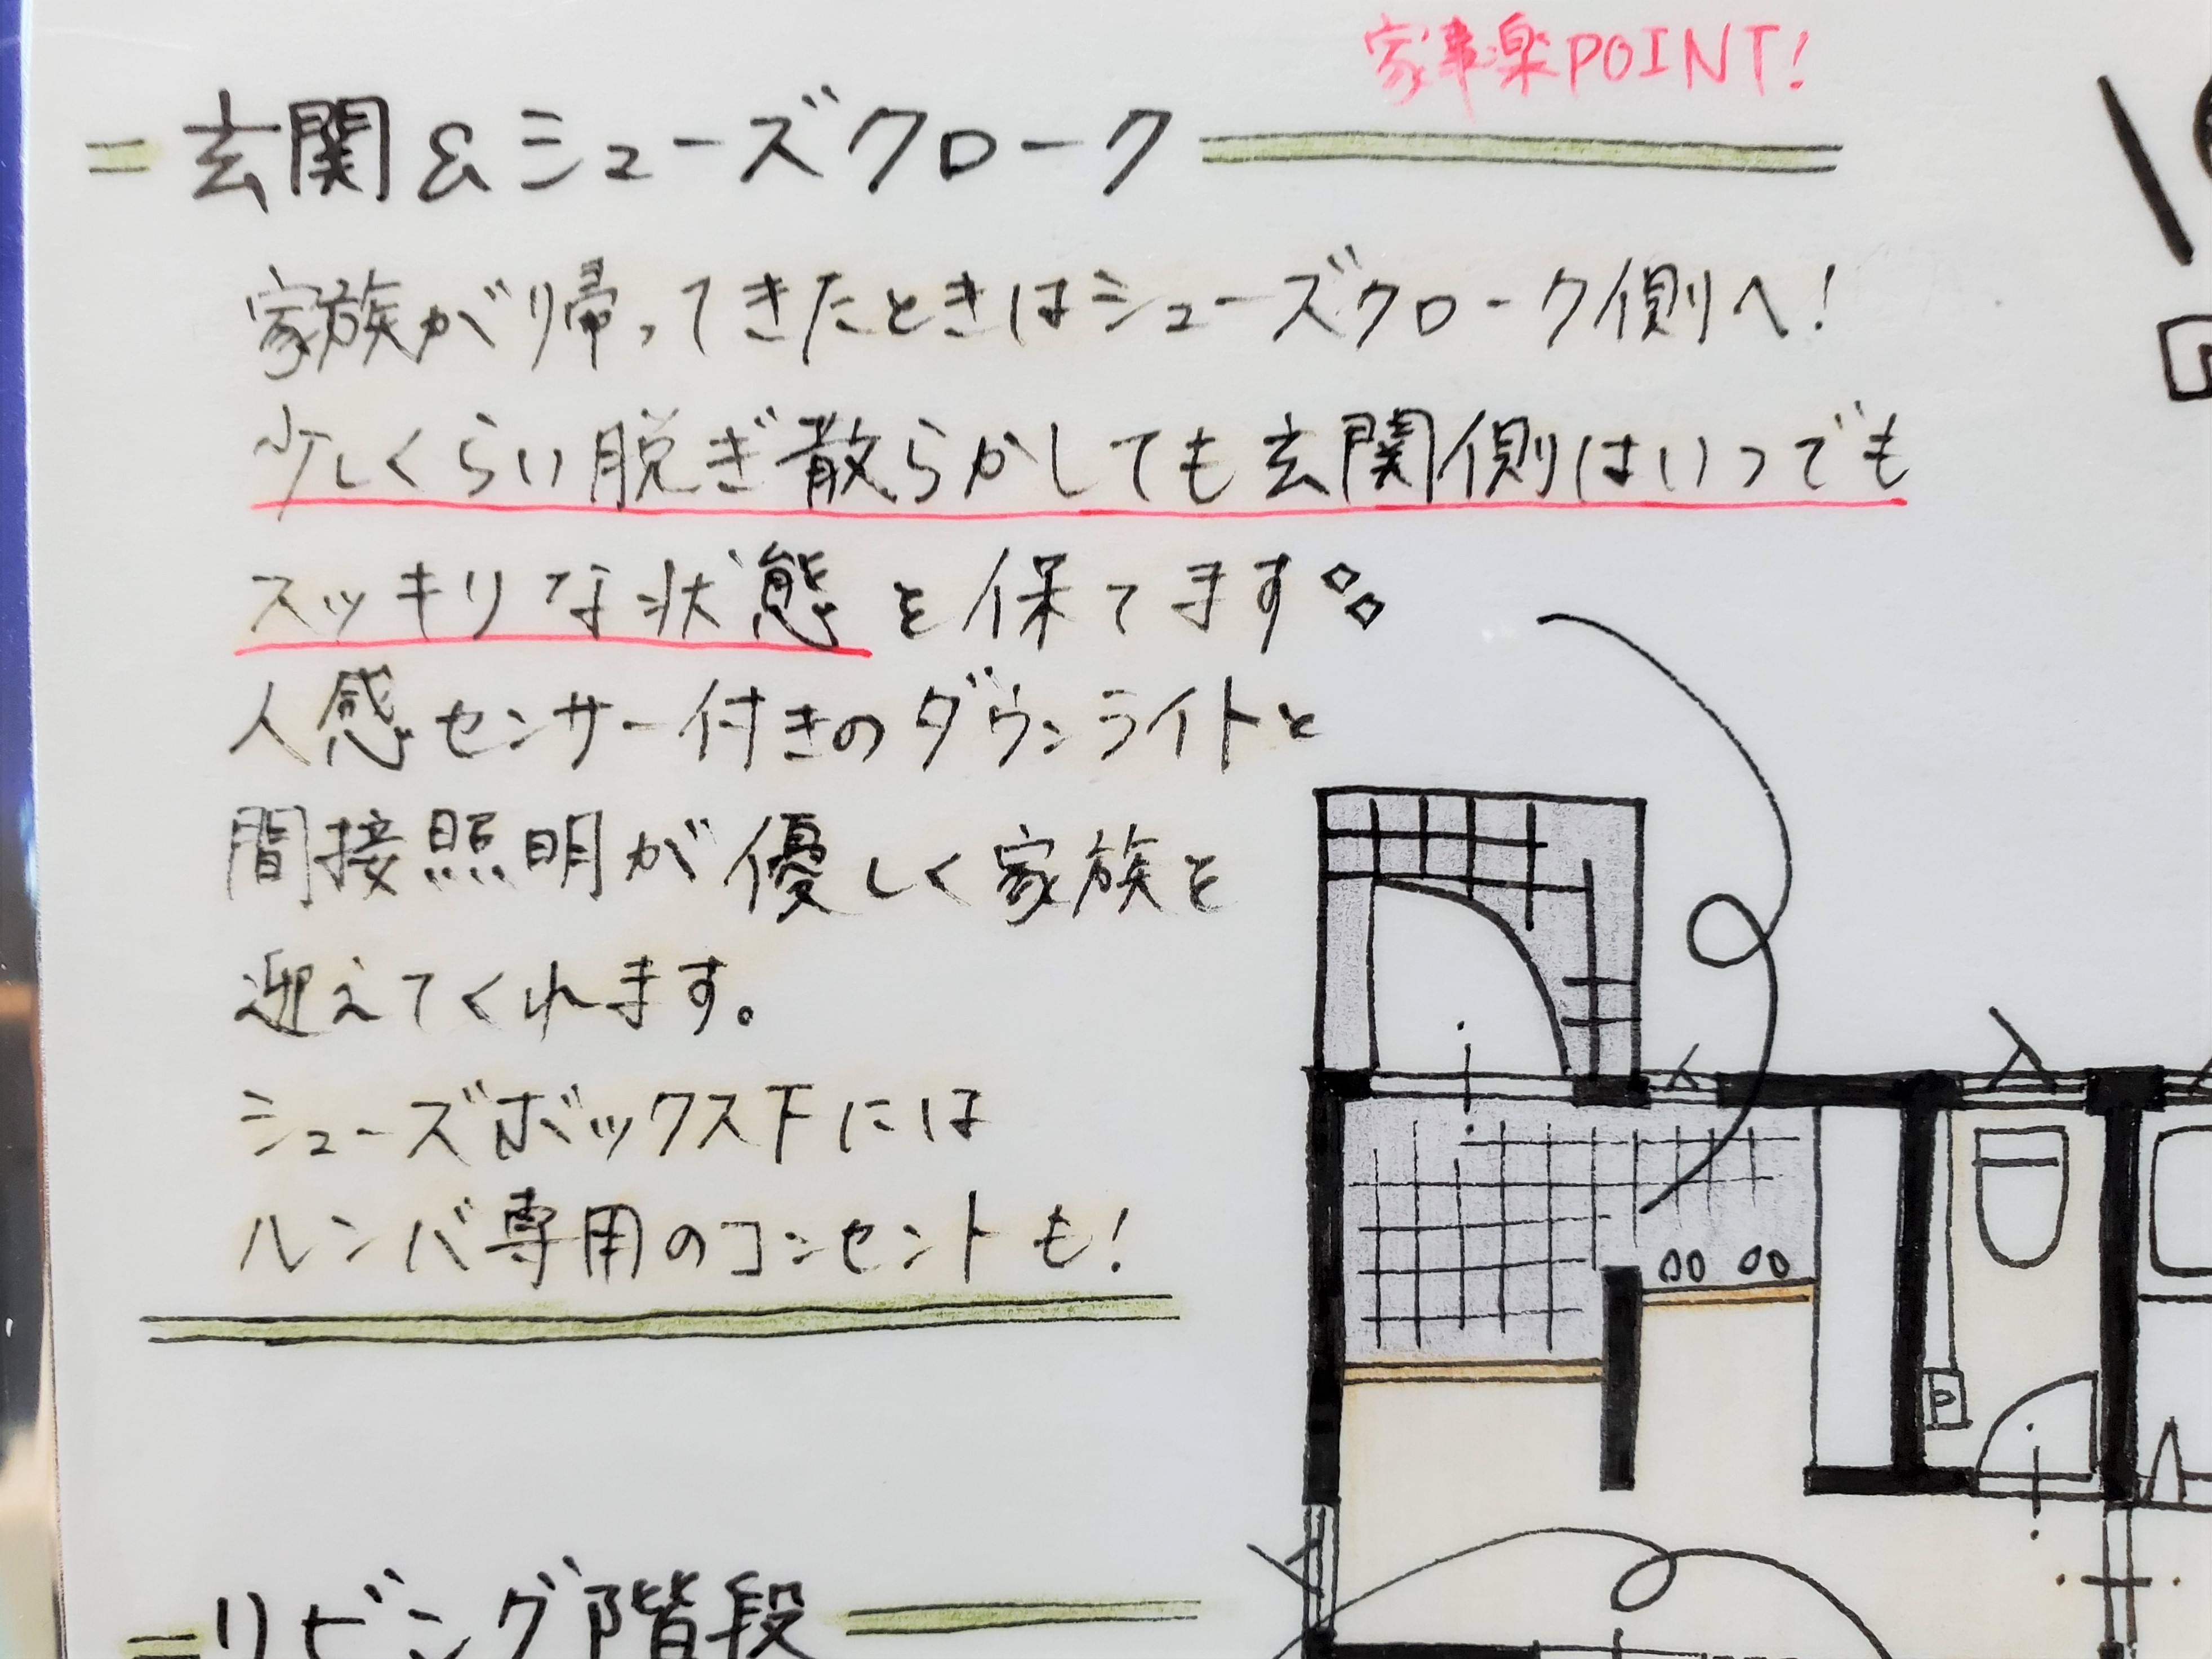 家事楽POINT!
玄関&シューズクローク
家族が帰ってきたときはシューズクローク側へ!
少しくらい脱ぎ散らかしても玄関側はいつでも
スッキリな状態を保てます
人感センサー付きのダウンライトと
間接照明が優しく家族を
迎えてくれます。
シューズボックス下には
ルンバ専用のコンセントも!
P
リビング階段